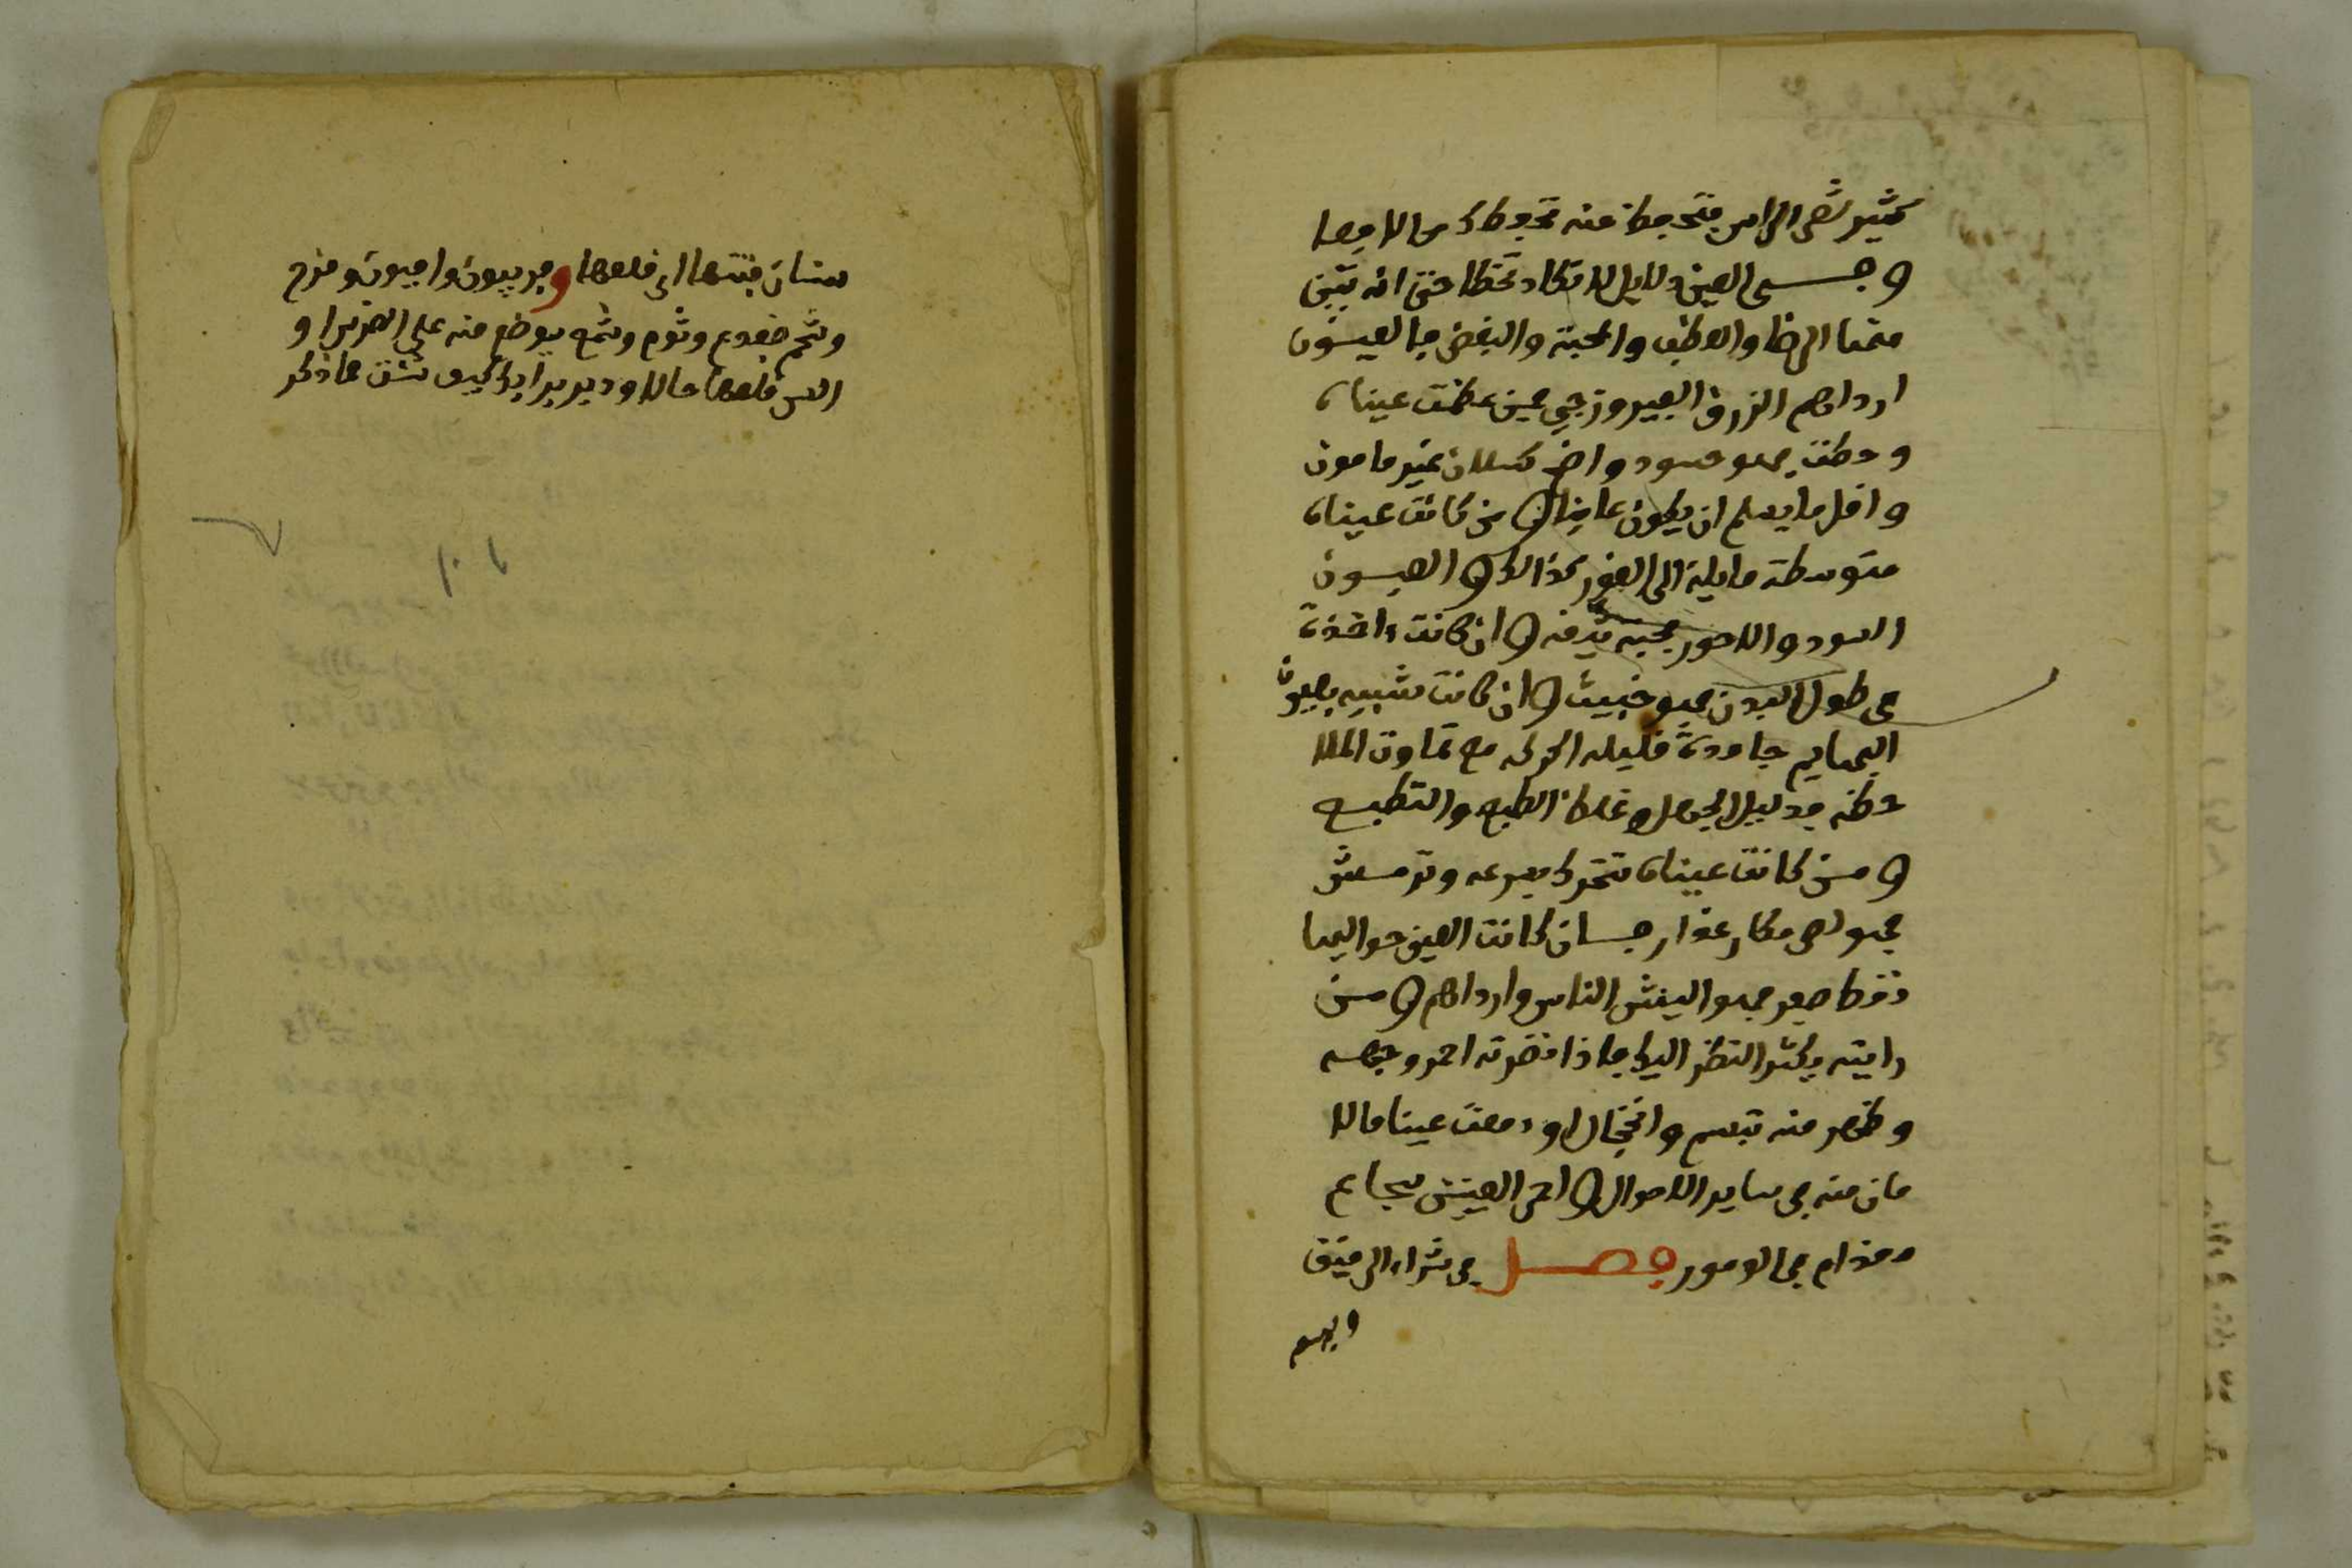 كثير شعر الراس فتحفظ منه تحفظك من الافعا
و في العين دلايل لا تكاد تخطا حتى انه يتبين
منها الرضا والعطف والمحبة والبغض فالعيون
ارداهم الزرق الفيروزجي فمن عظمت عيناه
وجحظت فهو حسود واخ كسلان غير مامون
واقل ما يسلم ان يكون عاينا و من كانت عيناه
متوسطة مايلة الى الغور كذالك و العيون
السود والاحور محبة و ان كانت داخذة
في طول البدن فهو خبيث و ان كانت شبيه بعيون
البهايم جامدة قليله الحركه مع تماوت الملا
حظه فدليل الجهل وغلظ الطبع والتطبع
و من كانت عيناه تتحرك بسرعه وترمش
فهو لص مكار غدار فان كانت العين حواليها
نقط صفر فهو اشر الناس وارداهم و من
رايته يكثر النظر اليك فاذا نظرته احمر وجهه
وظهر منه تبسم وانخجال او دمعت عينا مالا
مان منه في ساير الاحوال و احمر العينين شجاع
مقدام في الامور فصل في شراء الرقيق
سنان فتتها ان قلعها و فربيون وافيون و
وشحم ضفدع وثوم وشمع يوضع منه على الضرس او
السن قلعها حالا ودبر بدابرك كيف شئت مما ذكر